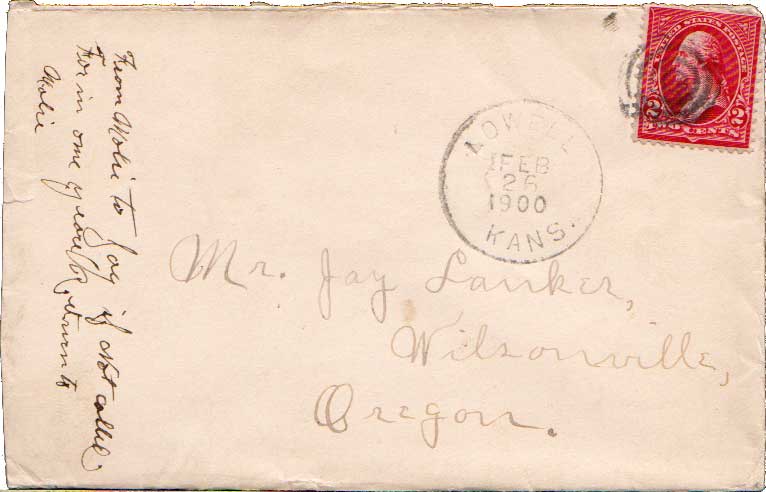 From Molie to Jay if Not called
For in one year Return to
Molie
UNITED STATES POSTAGE
2 2
TWO CENTS
LOWELL
FEB
26
1900
KANS.
Mr. Jay Lanker,
Wilsonville,
Oregon.